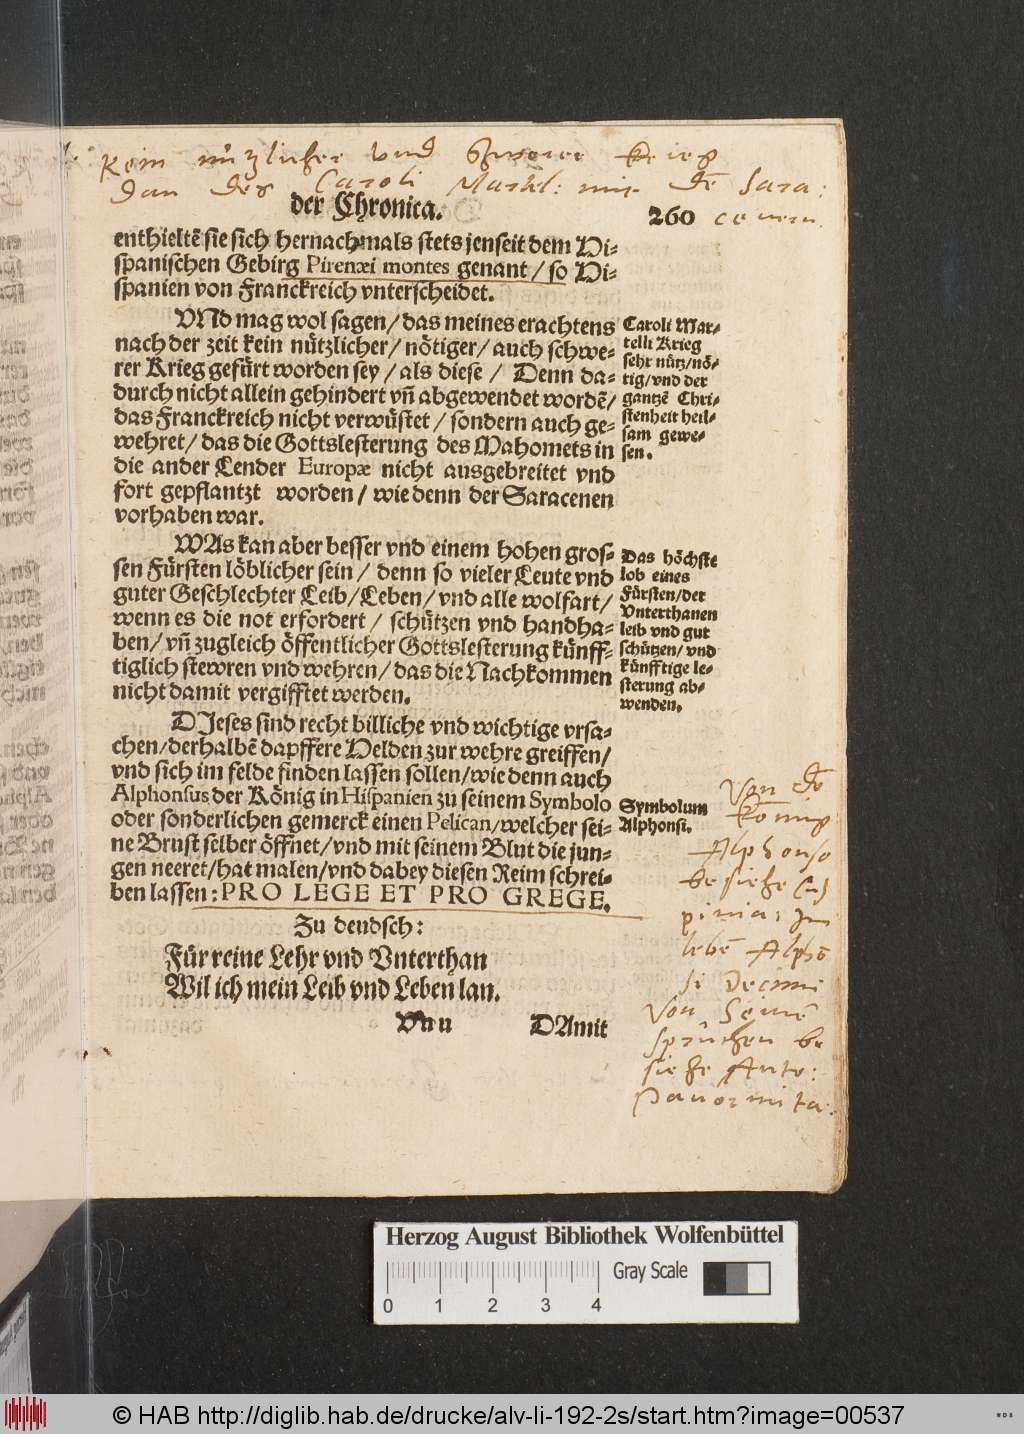 Kein nützlicher vnd schwerer krieg
dan des Caroli Martel: mit dē Sara:
cenern.
der Chronica.
260
enthieltē sie sich hernachmals stets jenseit dem Hi-
spanischen Gebirg Pirenæi montes genant / so Hi-
spanien von Franckreich vnterscheidet.
VNd mag wol sagen / das meines erachtens
nach der zeit kein nützlicher / nötiger / auch schwe-
rer Krieg gefürt worden sey / als diese / Denn da-
durch nicht allein gehindert vñ abgewendet wordē /
das Franckreich nicht verwüstet / sondern auch ge-
wehret / das die Gottslesterung des Mahomets in
die ander Lender Europæ nicht ausgebreitet vnd
fort gepflantzt worden / wie denn der Saracenen
vorhaben war.
Caroli Mar-
telli Krieg
sehr nütz / nö-
tig / vnd der
gantzē Chri-
stenheit heil-
sam gewe-
sen.
WAs kan aber besser vnd einem hohen gros-
sen Fürsten löblicher sein / denn so vieler Leute vnd
guter Geschlechter Leib / Leben / vnd alle wolfart /
wenn es die not erfordert / schützen vnd handha-
ben / vñ zugleich öffentlicher Gottslesterung künff-
tiglich stewren vnd wehren / das die Nachkommen
nicht damit vergifftet werden.
Das höchste
lob eines
Fürsten / der
Vnterthanen
leib vnd gut
schützen / vnd
künfftige le-
sterung ab-
wenden.
DJeses sind recht billiche vnd wichtige vrsa-
chen / derhalbē dapffere Helden zur wehre greiffen /
vnd sich im felde finden lassen sollen / wie denn auch
Alphonsus der König in Hispanien zu seinem Symbolo
oder sonderlichen gemerck einen Pelican / welcher sei-
ne Brust selber öffnet / vnd mit seinem Blut die jun-
gen neeret / hat malen / vnd dabey diesen Reim schrei-
ben lassen : PRO LEGE ET PRO GREGE.
Symbolum
Alphonsi.
Zu deudsch:
Für reine Lehr vnd Vnterthan
Wil ich mein Leib vnd Leben lan.
Vuu
DAmit
Von dē
König
Alphonso
besiehe
pinia: Im
lebē Alphō
si Decimi
Von Seinē
sprüchen be
siehe Anto:
Panormita:
Herzog August Bibliothek Wolfenbüttel
Gray Scale
0 1 2 3 4
© HAB http://diglib.hab.de/drucke/alv-li-192-2s/start.htm?image=00537